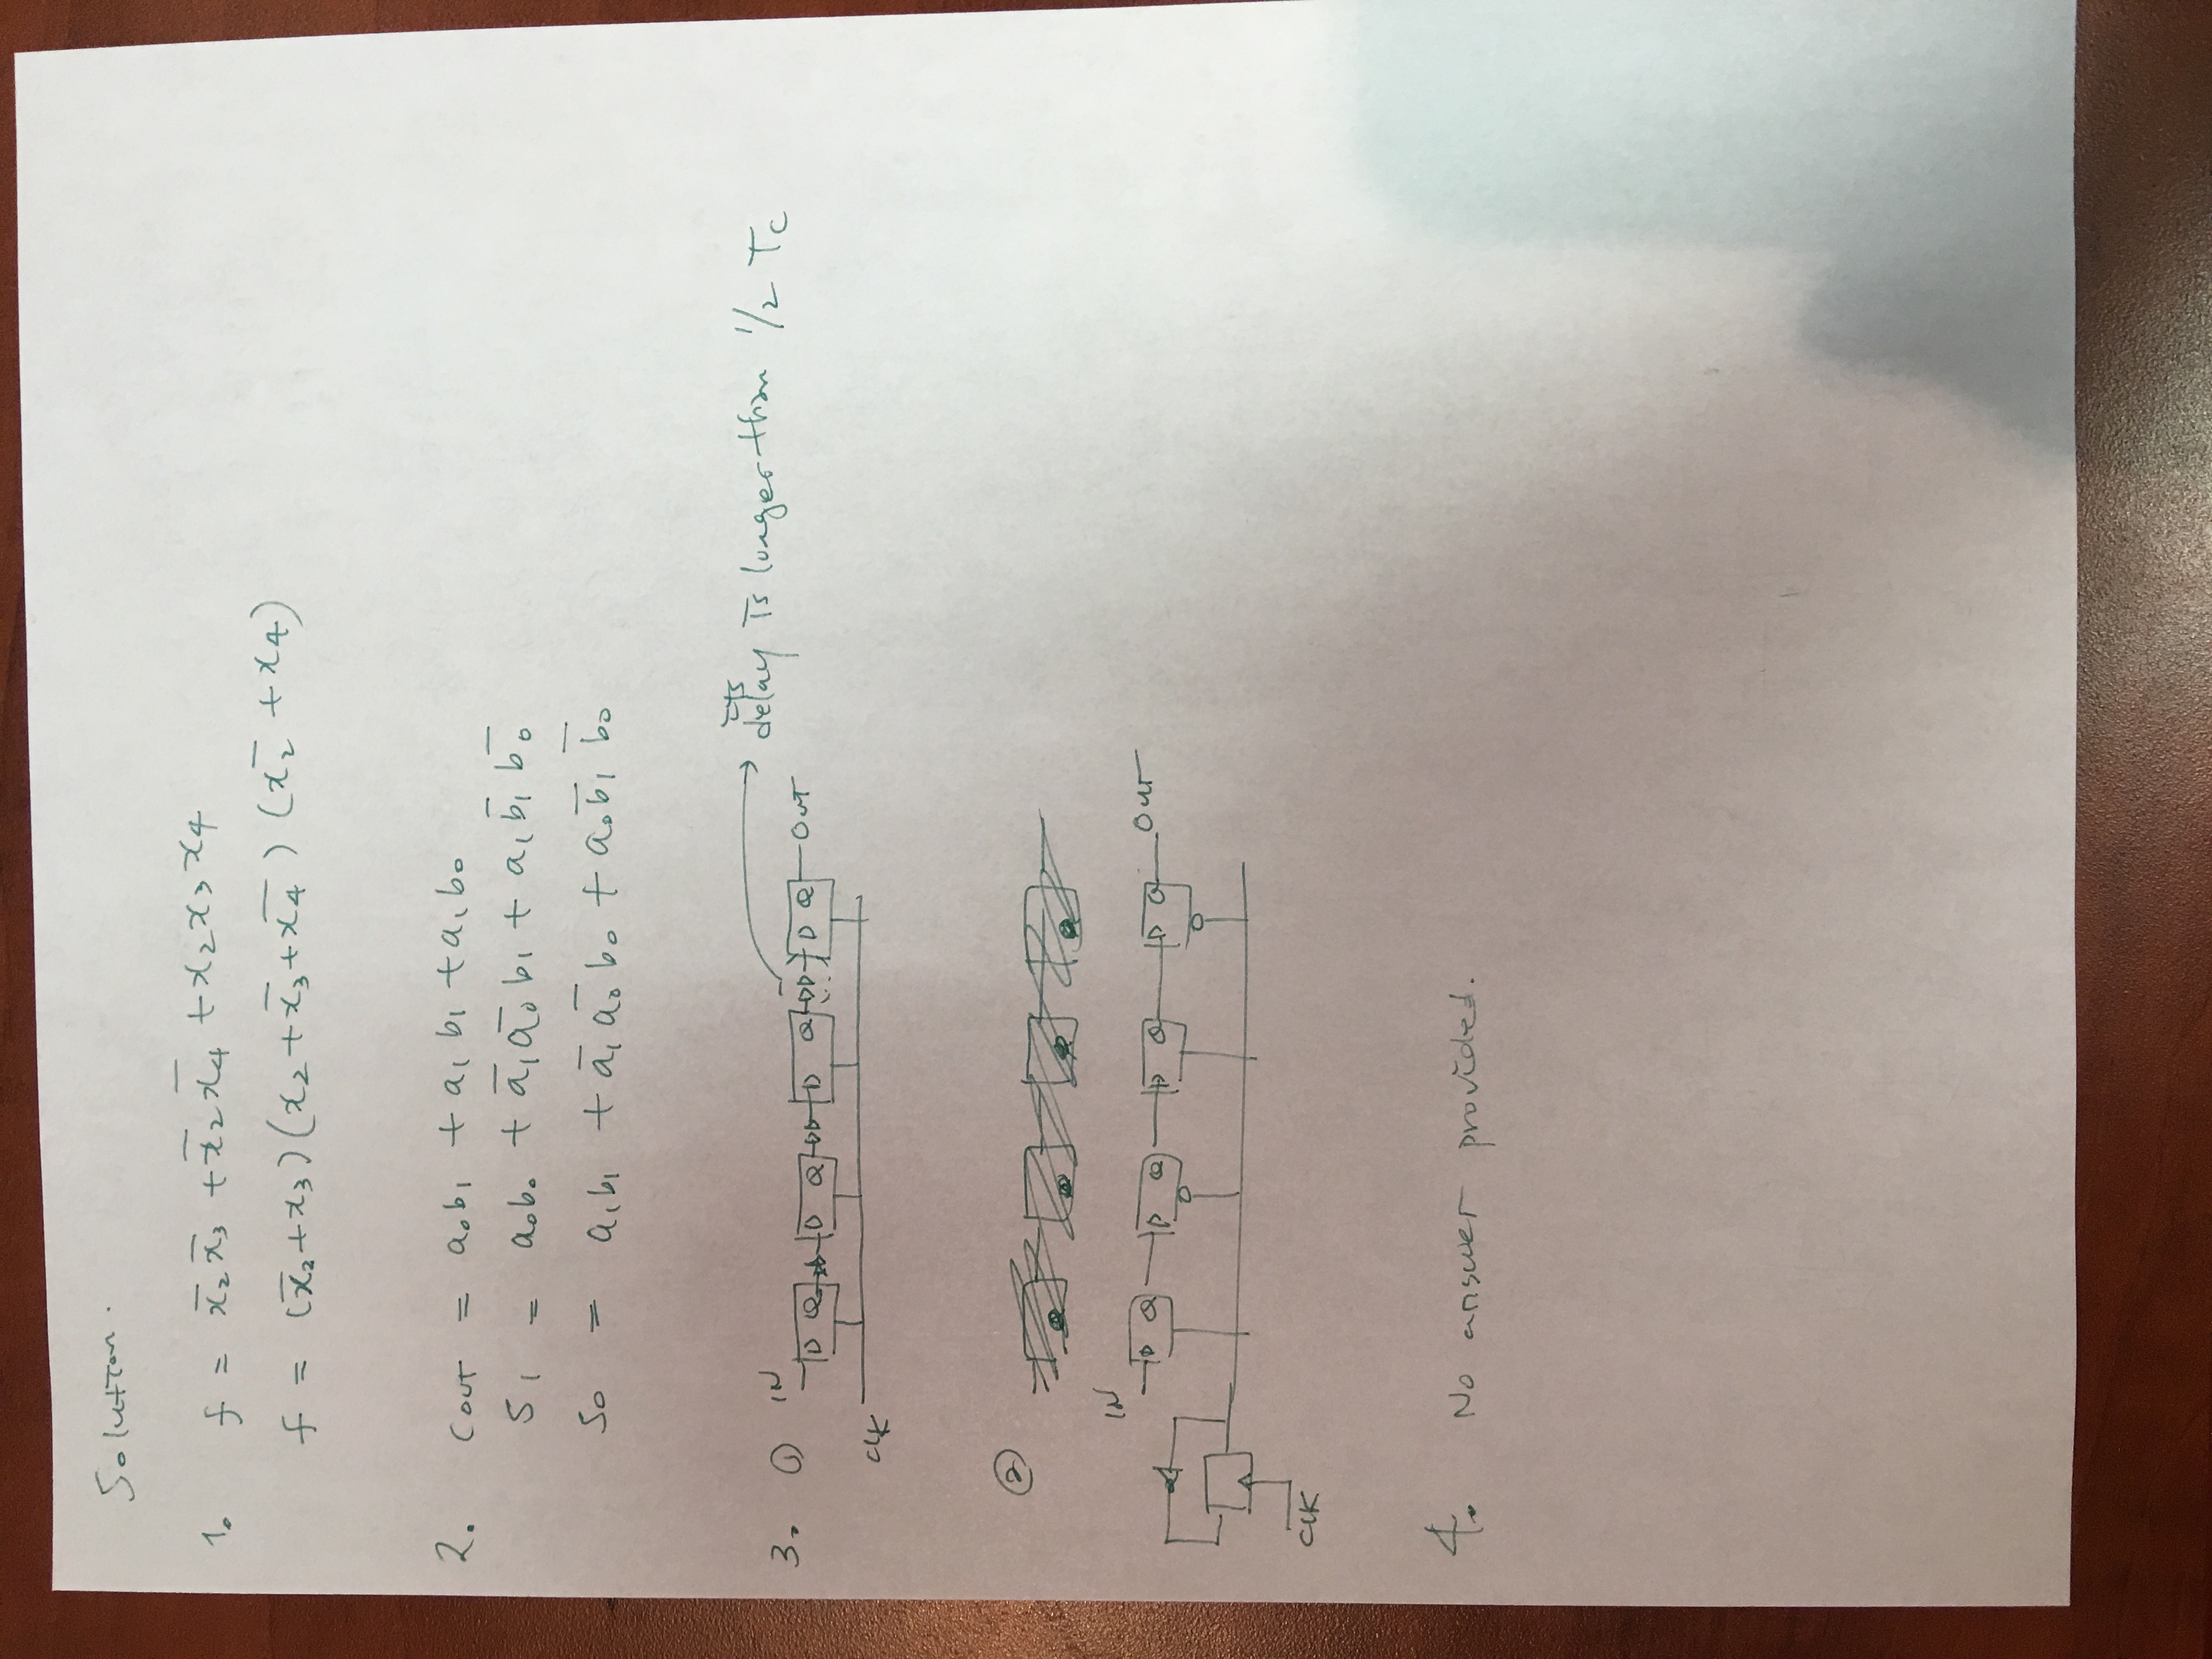 Solution.
1. f = x̅₂x̅₃ + x̅₂x̅₄ + x₂x₃x₄
f = (x̅₂+x₃)(x₂+x̅₃+x̅₄)(x̅₂+x₄)
2. Cout = a₀b₁ + a₁b₁ + a₁b₀
S₁ = a₀b₀ + a̅₁a̅₀b₁ + a₁b̅₁b̅₀
S₀ = a₁b₁ + a̅₁a̅₀b₀ + a₀b̅₁b̅₀
its
3. ① IN delay is longer than 1/2 Tc
D Q D Q D Q D Q OUT
CLK
②
IN
D Q D Q D Q D Q OUT
CLK
4. No answer provided.